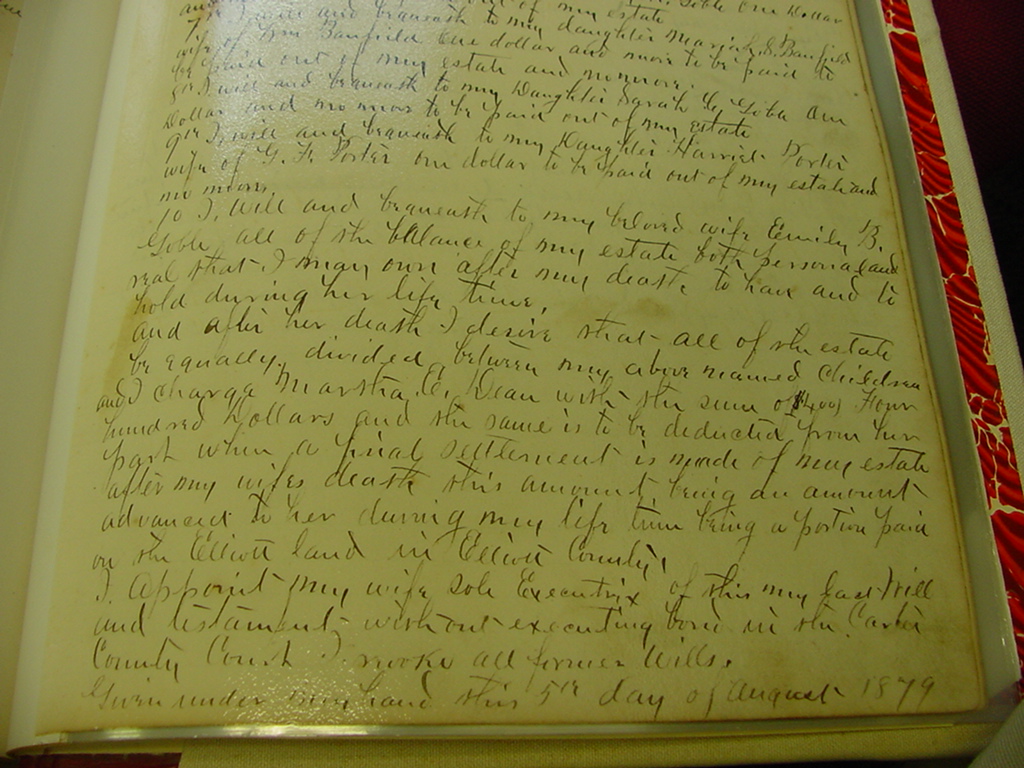 out of my estate Goble One Dollar
7th I will and bequeath to my daughter Mariah S. Banfield
wife of Wm Banfield One dollar and more to be paid to
be paid out of my estate and no more.
8th I will and bequeath to my Daughter Sarah Goble One
Dollar and no more to be paid out of my estate
9th I will and bequeath to my Daughter Harriet Porter
wife of G. F. Porter one dollar to be paid out of my estate and
no more.
10 I, will and bequeath to my beloved wife Emily B.
Goble all of the ballance of my estate both personal and
real that I may own after my death to have and to
hold during her life time,
and after her death I desire that all of the estate
be equally, divided, between my above named Children
and I charge Martha, C, Dean with the sum of $400) Four
hundred Dollars and the same is to be deducted from her
part when a final settlement is made of my estate
after my wifes death this amount, being an amount
advanced to her during my life time being a portion paid
on the Elliott land in Elliott County,
I. Appoint my wife sole Executrix of this my last Will
and testament without executing bond in the Carter
County Court I revoke all former Wills.
Given under my hand this 5th day of August 1879